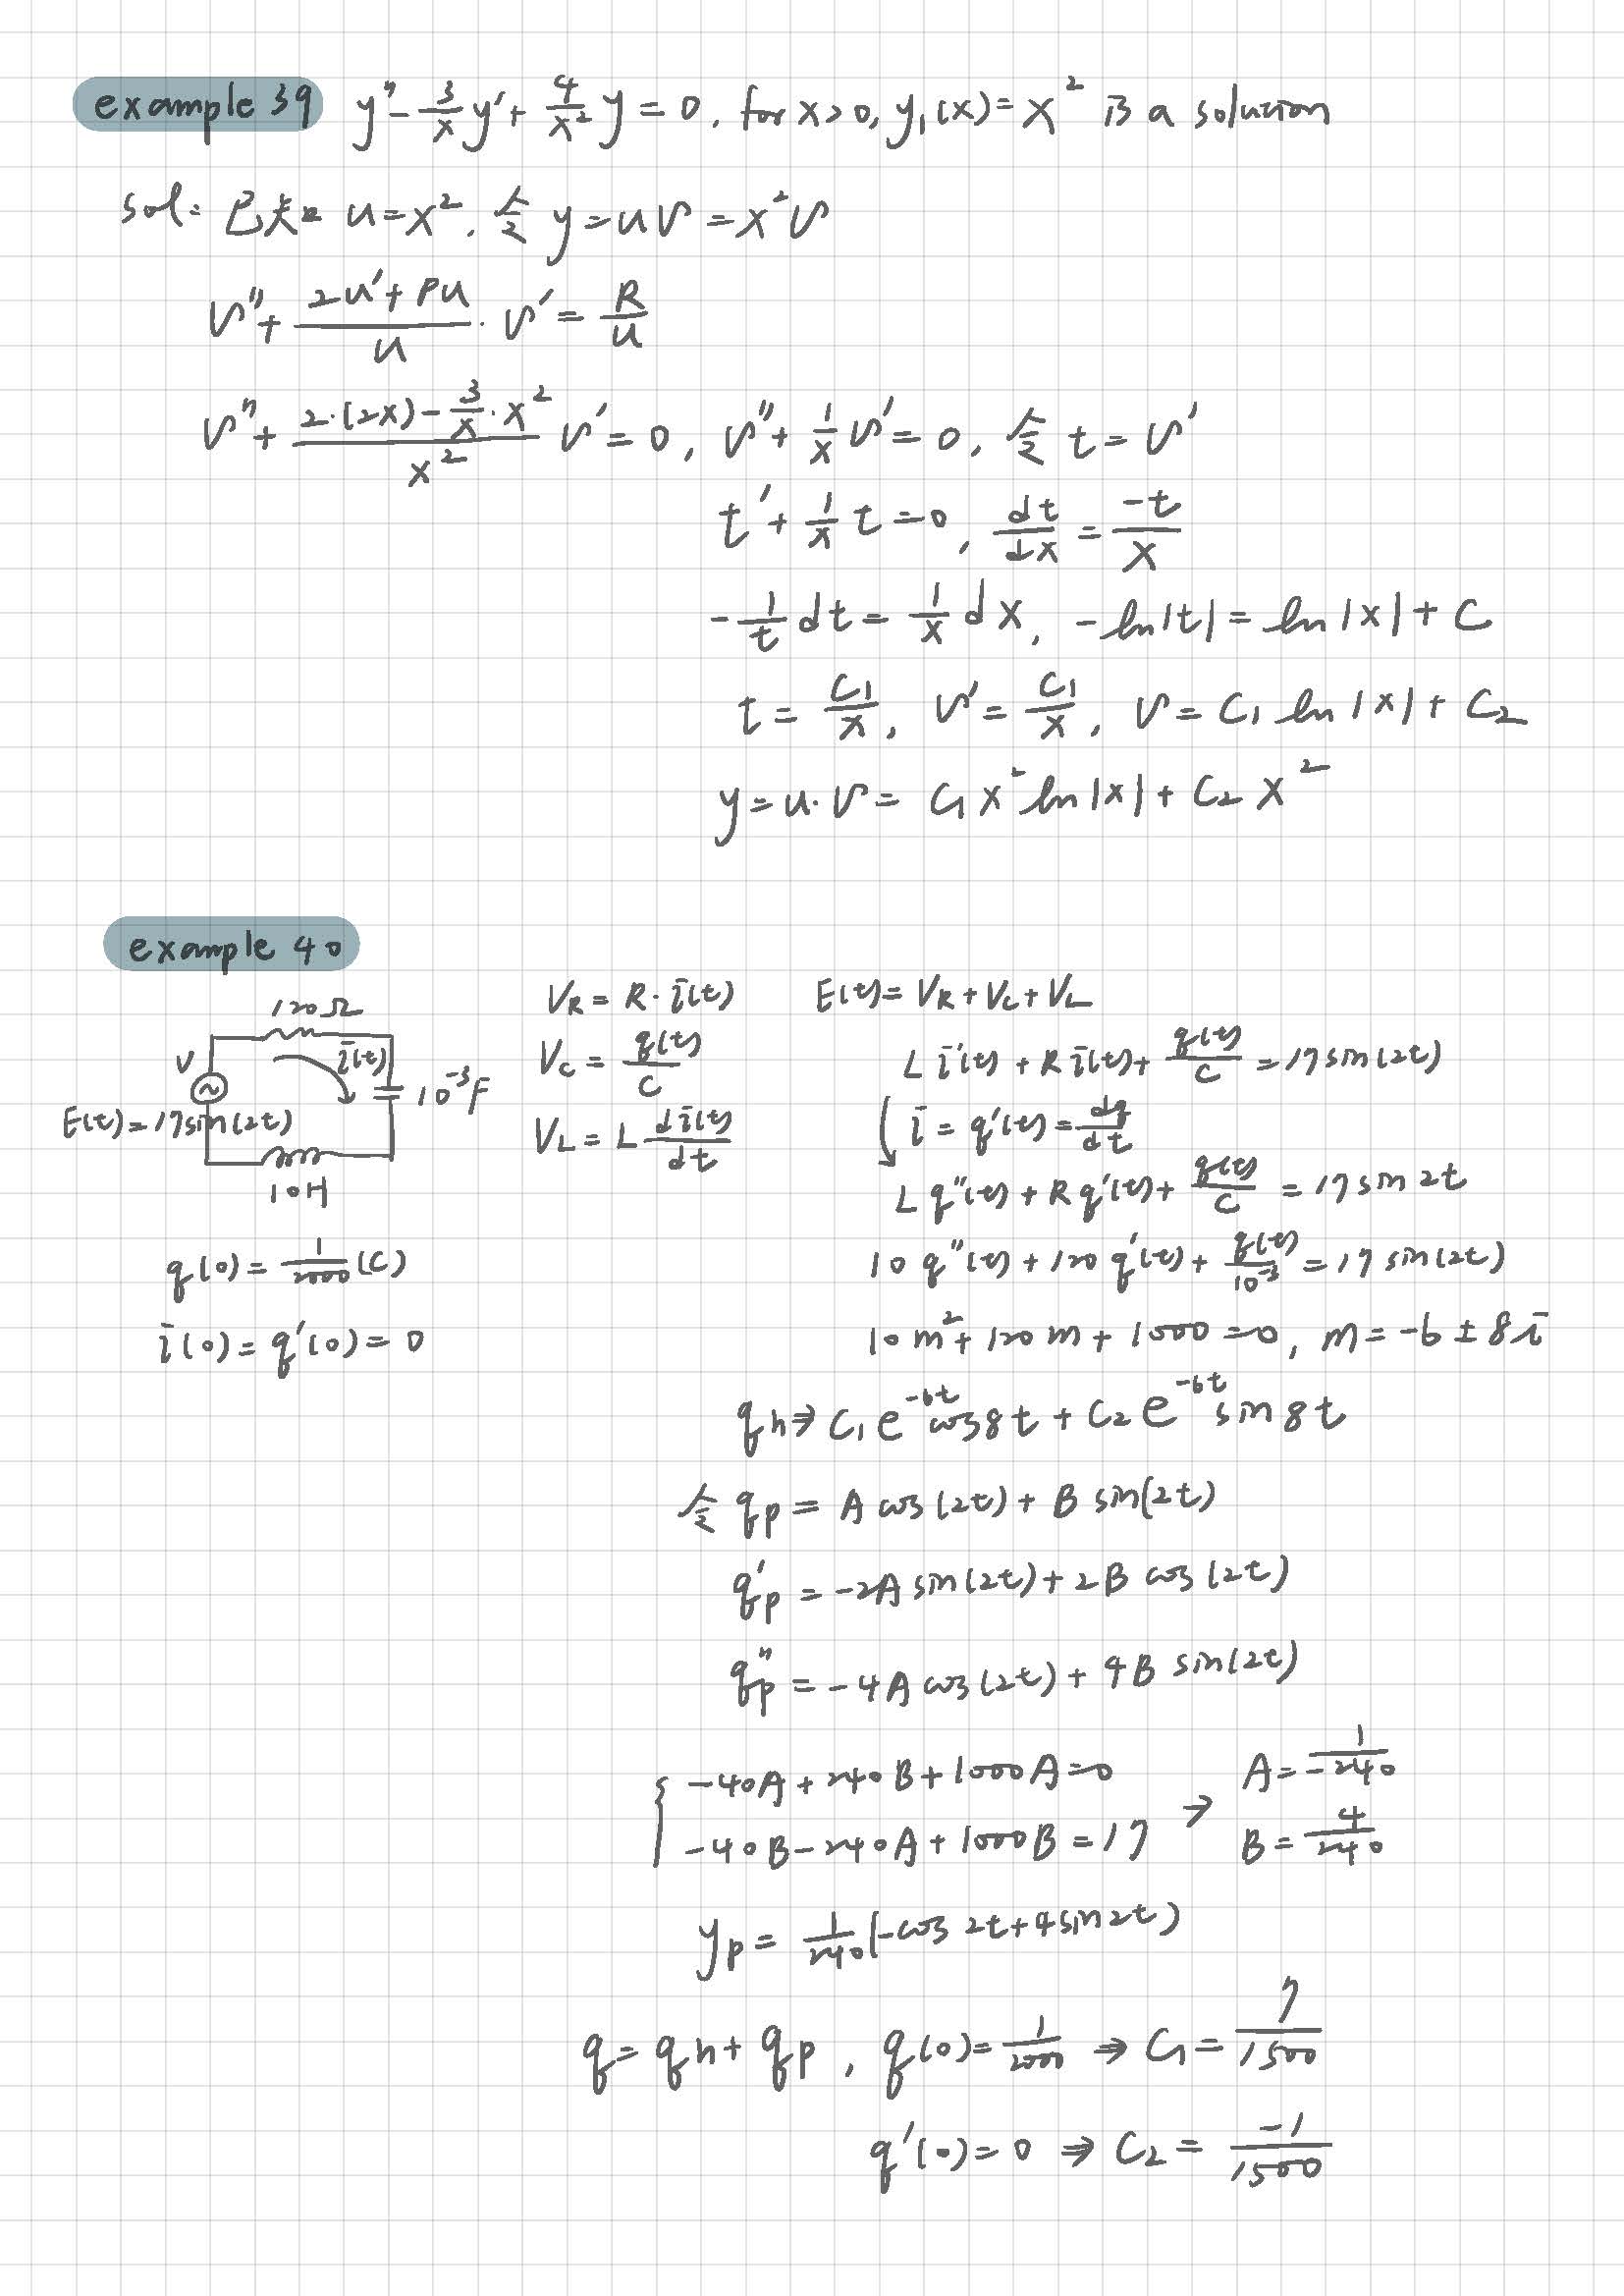 example 39 y'' - 3/x y' + 4/x² y = 0, for x > 0, y₁(x) = x² is a solution
sol: 已知 u = x², 令 y = uv = x²v
v'' + (2u' + Pu)/u · v' = R/u
v'' + (2·(2x) - 3/x · x²)/x² v' = 0, v'' + 1/x v' = 0, 令 t = v'
t' + 1/x t = 0, dt/dx = -t/x
-1/t dt = 1/x dx, -ln|t| = ln|x| + C
t = C₁/x, v' = C₁/x, v = C₁ ln|x| + C₂
y = u·v = C₁x² ln|x| + C₂x²
example 40
120Ω
V
i(t)
10⁻³F
E(t) = 17sin(2t)
10H
q(0) = 1/2000 (C)
i(0) = q'(0) = 0
V_R = R·i(t)
V_C = q(t)/C
V_L = L di(t)/dt
E(t) = V_R + V_C + V_L
L i'(t) + R i(t) + q(t)/C = 17sin(2t)
i = q'(t) = dq/dt
L q''(t) + R q'(t) + q(t)/C = 17 sin 2t
10 q''(t) + 120 q'(t) + q(t)/10⁻³ = 17 sin(2t)
10m² + 120m + 1000 = 0, m = -6 ± 8i
q_h ⇒ C₁e^(-6t) cos8t + C₂e^(-6t) sin8t
令 q_p = A cos(2t) + B sin(2t)
q'_p = -2A sin(2t) + 2B cos(2t)
q''_p = -4A cos(2t) + 4B sin(2t)
{ -40A + 240B + 1000A = 0
-40B - 240A + 1000B = 17
→ A = 1/-240
B = 4/240
y_p = 1/240 (-cos 2t + 4sin2t)
q = q_h + q_p, q(0) = 1/2000 ⇒ C₁ = 7/1500
q'(0) = 0 ⇒ C₂ = -1/1500